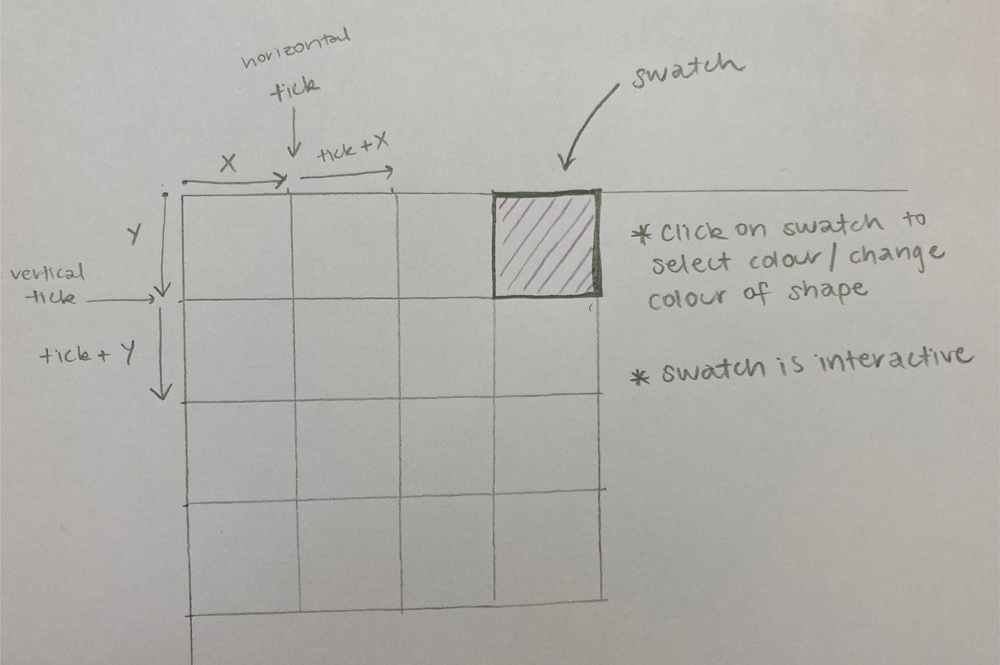 horizontal
tick
swatch
X
tick + X
Y
vertical
tick
tick + Y
* Click on swatch to
select colour / change
colour of shape
* swatch is interactive